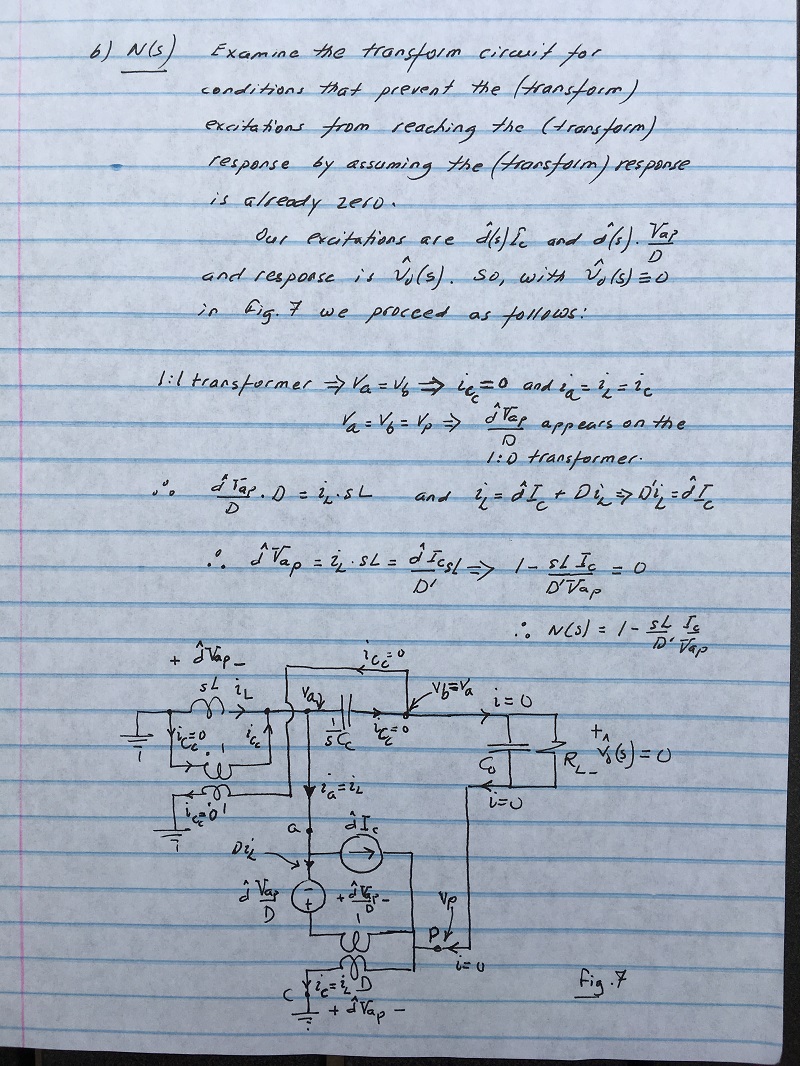 b) N(s) Examine the transform circuit for
conditions that prevent the (transform)
excitations from reaching the (transform)
response by assuming the (transform) response
is already zero.
Our excitations are d̂(s)I_c and d̂(s)·V_ap/D
and response is v̂_o(s). So, with v̂_o(s) ≡ 0
in Fig. 7 we proceed as follows:
1:1 transformer ⇒ v_a = v_b ⇒ i_{C_c} = 0 and i_a = i_L = i_c
v_a = v_b = v_p ⇒ d̂V_ap/D appears on the
1:D transformer.
∴ d̂V_ap/D · D = i_L·sL and i_L = d̂I_c + Di_L ⇒ D'i_L = d̂I_c
∴ d̂V_ap = i_L·sL = d̂I_c/D' sL ⇒ 1 - sLI_c/D'V_ap = 0
∴ N(s) = 1 - sL/D' I_c/V_ap
+ d̂V_ap -
i_{C_c}=0
sL i_L
v_a
v_b=v_a
i=0
i_{C_c}=0
i_{C_c}
1/sC_c
i_{C_c}=0
C_o
R_L
+ v̂_o(s) = 0 -
1
1
i_{C_c}=0
i_a=i_L
i=0
a
d̂I_c
Di_L
d̂V_ap/D
- +
+ d̂V_ap/D -
1
v_p
P
i=0
C
i_c=i_L D
+ d̂V_ap -
Fig. 7